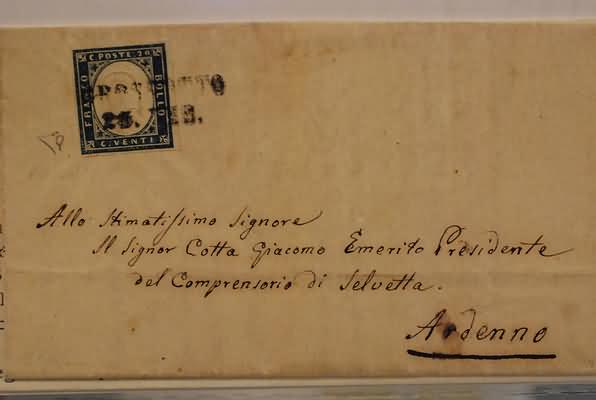 C. POSTE 20
FRANCO
BOLLO
C. VENTI
Allo Stimatissimo Signore
Il Signor Cotta Giacomo Emerito Presidente
del Comprensorio di Selvetta.
Ardenno